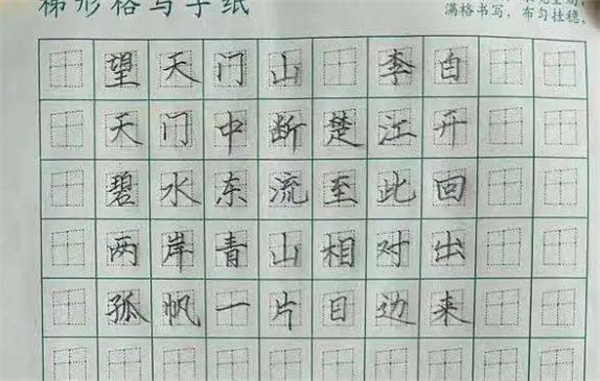 梯形格写字纸
满格书写，布匀挂稳，
望天门山 李自
天门中断楚江开
碧水东流至此回
两岸青山相对出
孤帆一片日边来